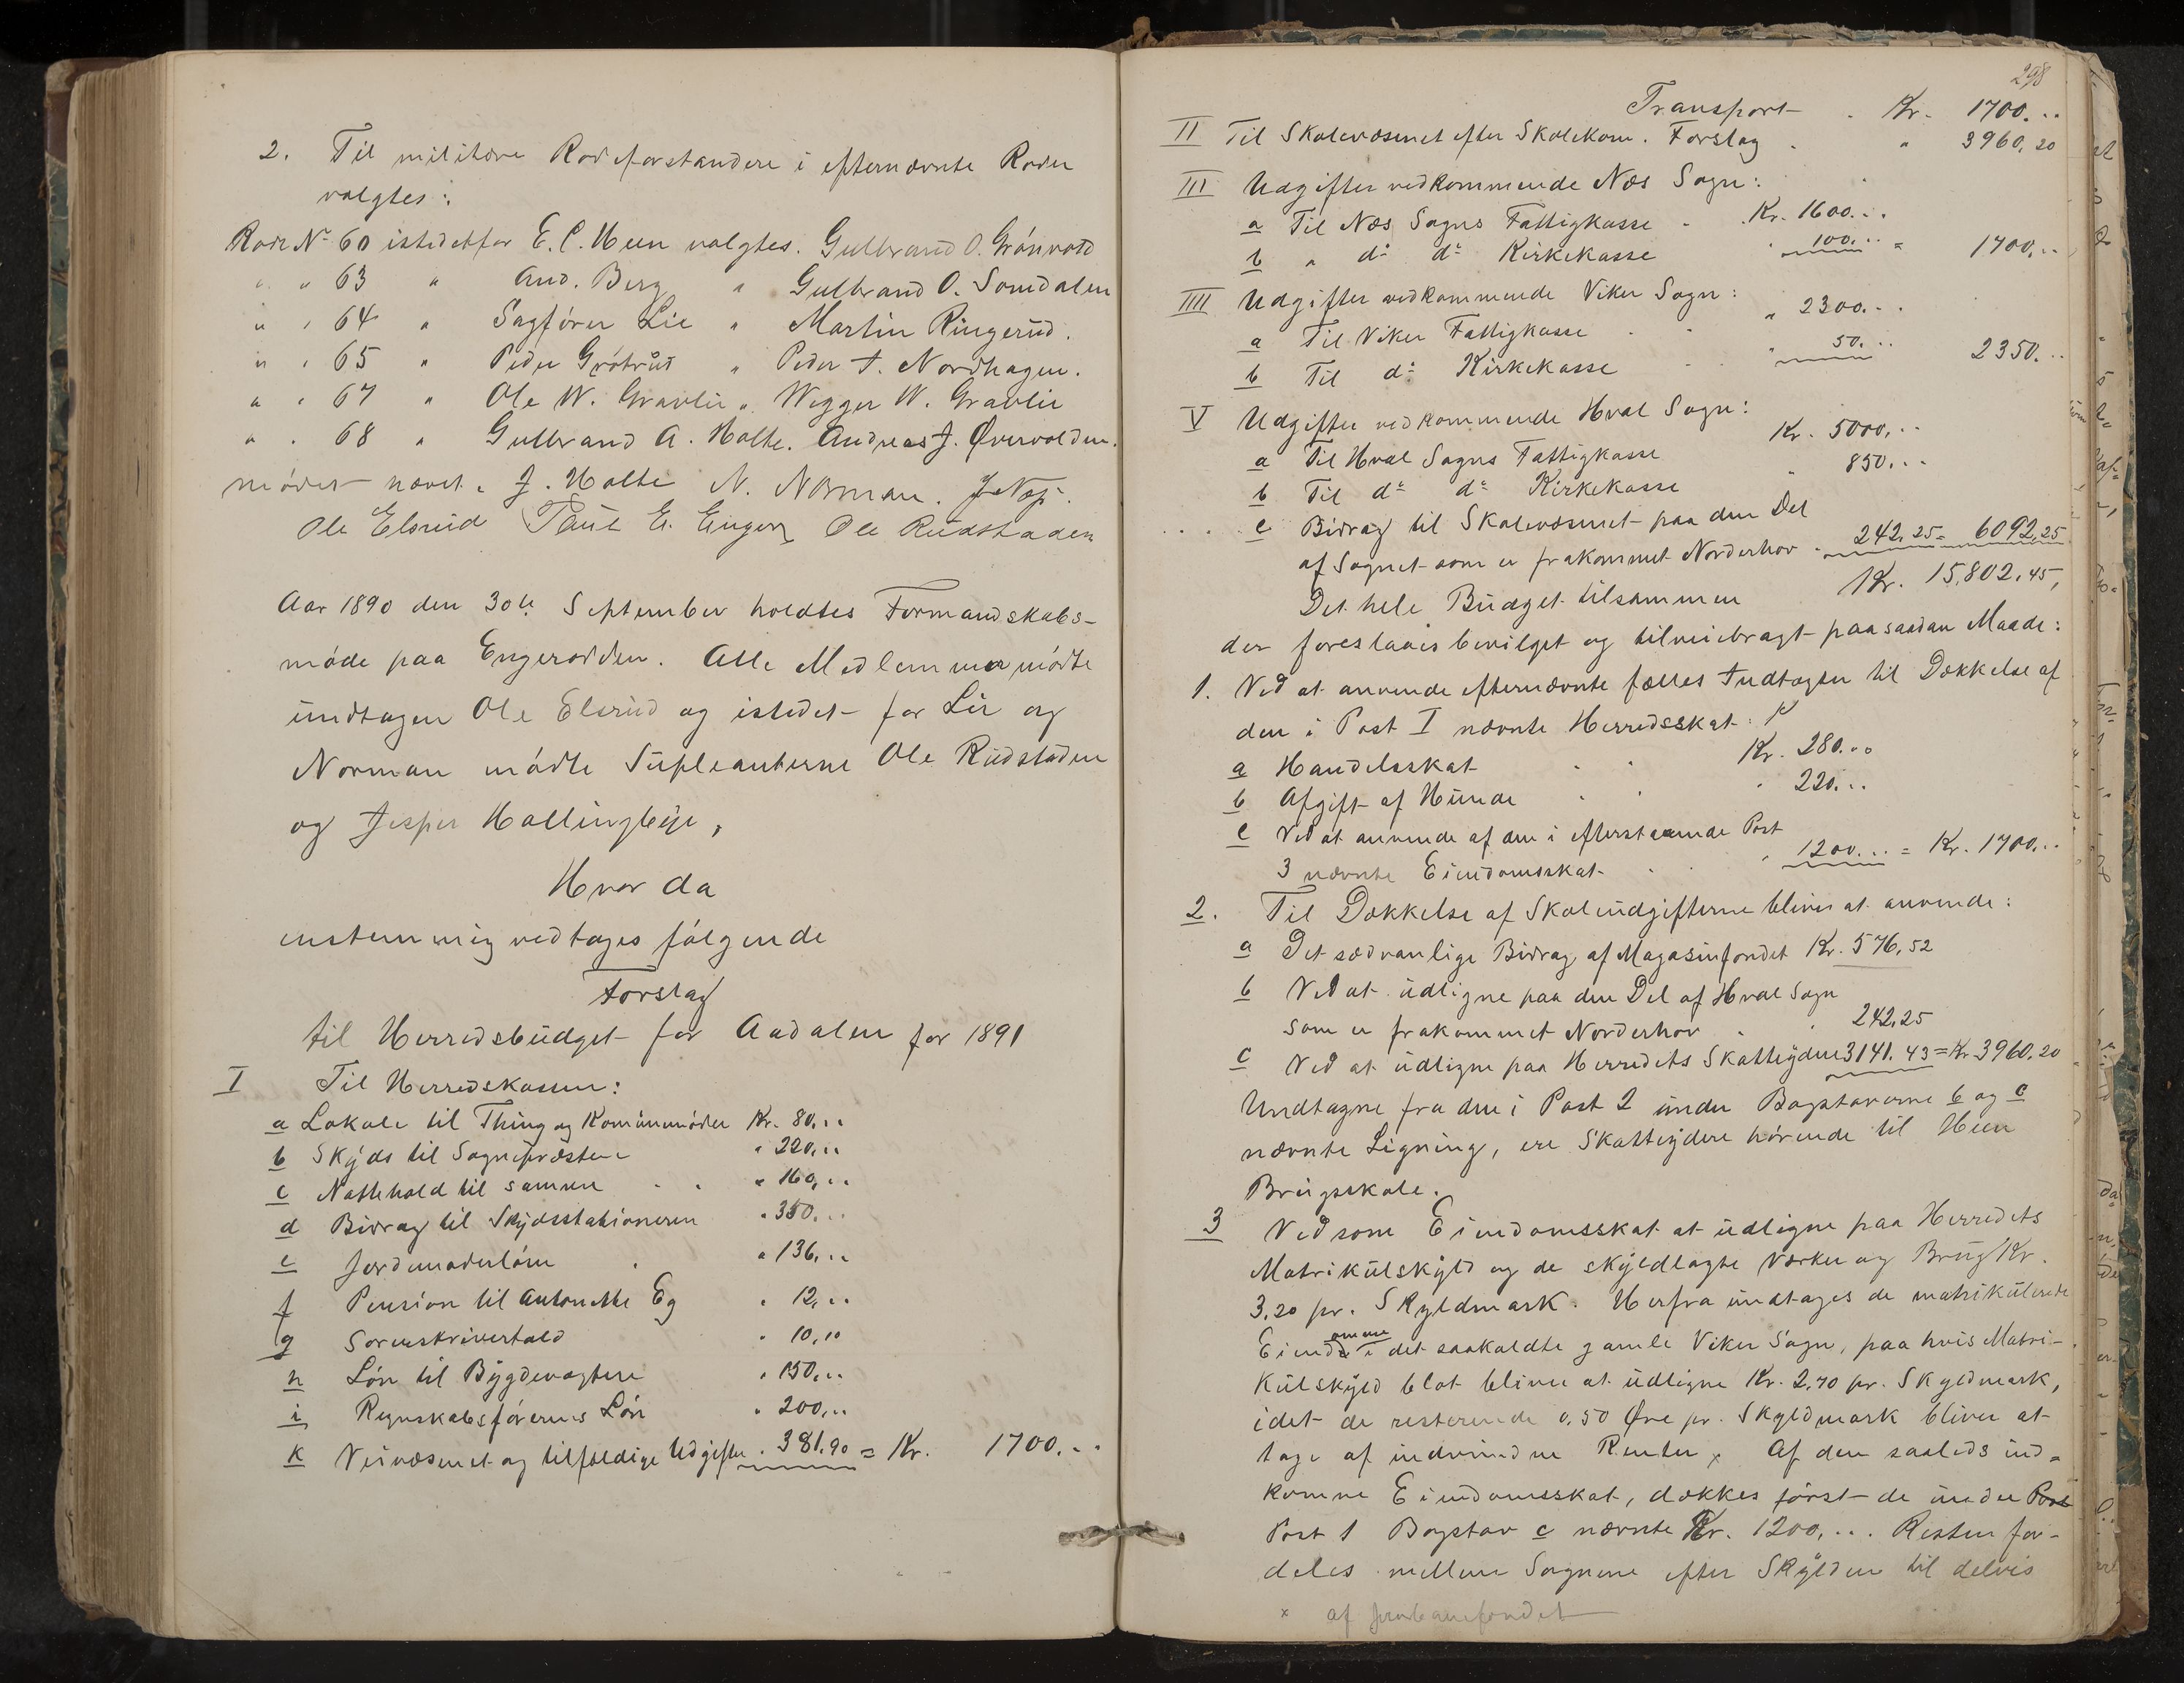 2. Til militære Rodeforstandere i efternævnte Roder
valgtes:
Rode No 60 istedetfor E. C. Heen valgtes. Gulbrand O. Grønvold
" " 63 " And. Berg " Gulbrand O. Somdalen
" " 64 " Sagfører Lie " Martin Ringerud.
" " 65 " Peder Grøtrud " Peder T. Nordhagen.
" " 67 " Ole W. Gravlie " Wegger W. Gravlie
" " 68 " Gulbrand A. Holte. Andreas J. Øvervolden.
mødet hævet. J. Holte N. Norman.
Ole Elsrud Paul E. Enger Ole Rudstaden
Aar 1890 den 30te September holdtes Formandskabs-
møde paa Engerodden. Alle Medlemmer mødte
undtagen Ole Elsrud og istedet for Lie og
Norman mødte Supleanterne Ole Rudstaden
og Jesper Hallingbye,
Hvor da
enstemmig vedtages følgende
Forslag
til Herredsbudget for Aadalen for 1891
I Til Herredskassen:
a Lokale til Thing og Komunemøder Kr. 80,..
b Skyds til Sognepræsten " 220,..
c Nattehold til samme . . " 160,..
d Bidrag til Skydsstationeren " 350...
e Jordmoderløn . " 136,..
f Pension til Antonette Eg " 12,..
g Sorenskrivertold " 10,10
h Løn til Bygdevægtere " 150,..
i Regnskabsførerens Løn " 200,..
k Veivæsenet og tilfældige Udgifter " 381.90 = Kr. 1700...
298
Transport . Kr. 1700...
II Til Skolevæsenet efter Skolekom. Forslag . " 3960,20
III Udgifter vedkommende Næs Sogn:
a Til Næs Sogns Fattigkasse . Kr. 1600...
b " do do Kirkekasse " 100... = 1700,..
IIII Udgifter vedkommende Viker Sogn:
a Til Viker Fattigkasse . . " 2300...
b Til do Kirkekasse . . " 50... 2350...
V Udgifter vedkommende Hval Sogn:
a Til Hval Sogns Fattigkasse Kr. 5000,..
b Til do do Kirkekasse " 850...
c Bidrag til Skolevæsenet paa den Del
af Sognet som er frakommet Norderhov . 242,25 = 6092,25
Det hele Budget tilsammen Kr. 15,802,45,
der foreslaaes bevilget og tilveiebragt paa saadan Maade:
1. Ved at anvende efternævnte fælles Indtægter til Dækkelse af
den i Post I nævnte Herredsskat:
a Handelsskat . . Kr. 280...
b Afgift af Hunde . . " 220...
c Ved at anvende af den i efterstaaende Post
3 nævnte Eiendomsskat . . " 1200... = Kr. 1700...
2. Til Dækkelse af Skoleudgifterne bliver at anvende:
a Det sædvanlige Bidrag af Magasinfondet Kr. 576,52
b Ved at udligne paa den Del af Hval Sogn
som er frakommet Norderhov . . 242,25
c Ved at udligne paa Herredets Skatteydere 3141.43 = Kr 3960,20
Undtagne fra den i Post 2 under Bogstaverne b og c
nævnte Ligning, ere Skatteydere hørende til Heen
Brugsskole.
3 Ved som Eiendomsskat at udligne paa Herredets
Matrikülskyld og de skyldlagte Værker og Brug Kr.
3,20 pr. Skyldmark. Herfra undtages de matrikulerede
Eiendomme i det saakaldte gamle Viker Sogn, paa hvis Matri-
kulskyld blot bliver at udligne Kr. 2,70 pr. Skyldmark,
idet de resterende 0,50 Øre pr. Skyldmark bliver at
tage af indvundne Renter x Af den saaleds ind-
komne Eiendomsskat, dækkes først de under Post
Post 1 Bogstav c nævnte Kr. 1200,... Resten for-
deles mellem Sognene efter Skylden til delvis
x af jernbanefondet